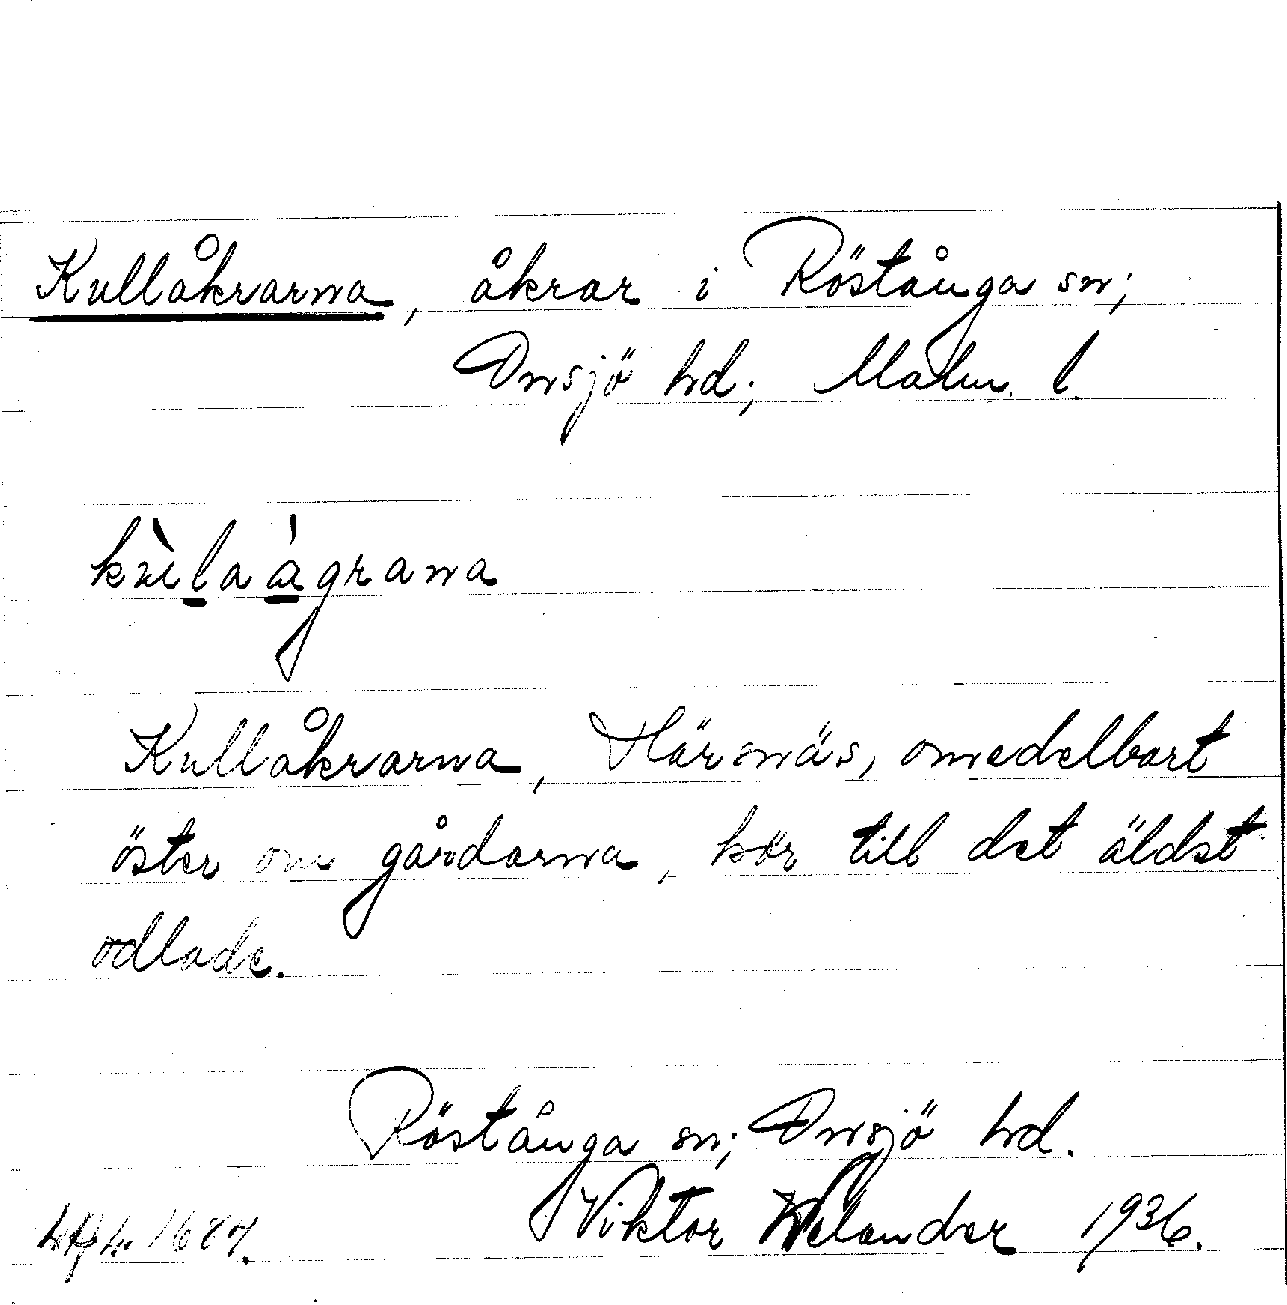 Kullåkrarna, åkrar i Röstånga sn;
Onsjö hd; Malm. l.
kùla ágrana
Kullåkrarna, Härsnäs, omedelbart
öster om gårdarna, hör till det äldst
odlade.
Röstånga sn; Onsjö hd.
Viktor Welander 1936.